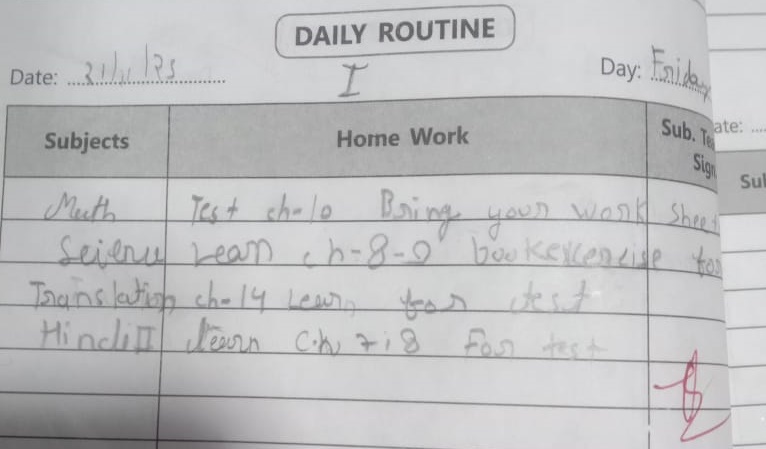 DAILY ROUTINE
Date: 21/11/25
I
Day: Friday
Subjects Home Work Sub. Te
Sign
ate:
Sul
Math Test ch-10 Bring your work sheet
Learn ch-8-9 book
Translation ch-14 Learn for test
Hindi II Learn C.h 7,8 For test